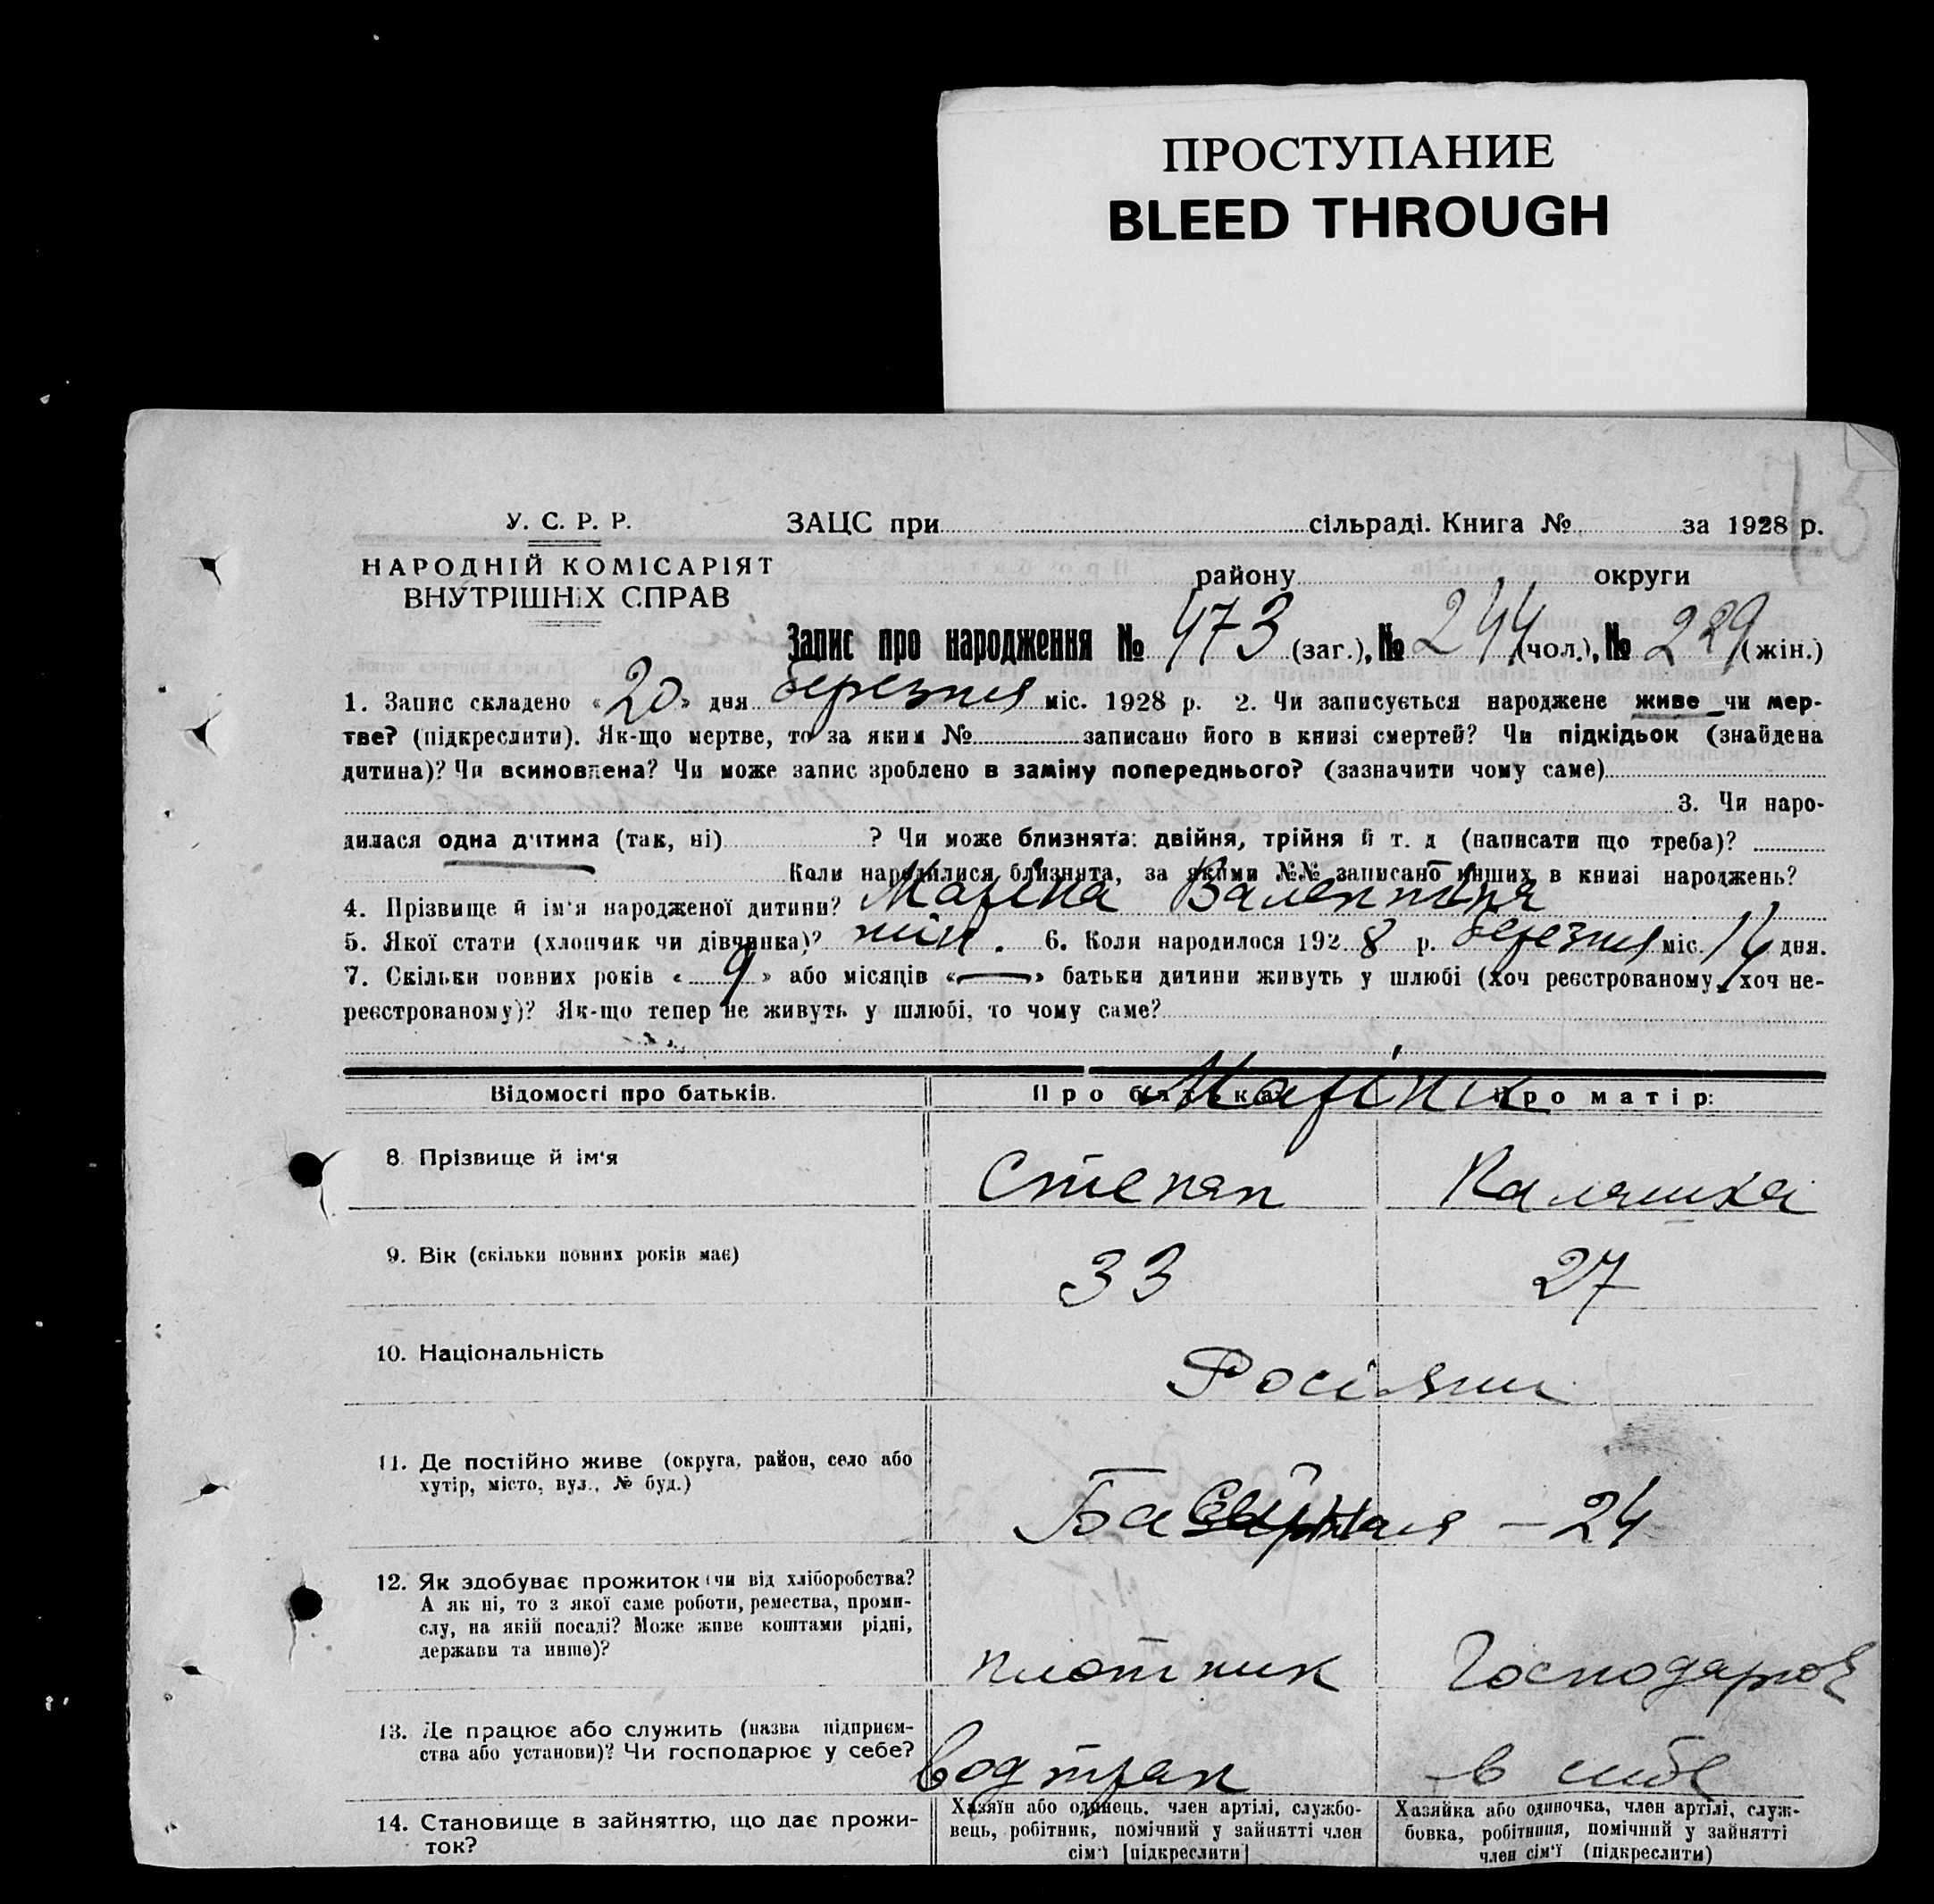 ПРОСТУПАНИЕ
BLEED THROUGH
У. С. Р. Р.
НАРОДНІЙ КОМІСАРІЯТ
ВНУТРІШНІХ СПРАВ
ЗАЦС при сільраді. Книга № за 1928 р.
району округи
Запис про народження № 473 (заг.), № 244 (чол.), № 229 (жін.)
1. Запис складено «20» дня березня міс. 1928 р. 2. Чи записується народжене живе чи мер-
тве? (підкреслити). Як-що мертве, то за яким № записано його в книзі смертей? Чи підкідьок (знайдена
дитина)? Чи всиновлена? Чи може запис зроблено в заміну попереднього? (зазначити чому саме)
3. Чи наро-
дилася одна дитина (так, ні) ? Чи може близнята: двійня, трійня й т. д (написати що треба)?
Коли народилися близнята, за якими №№ записано инших в книзі народжень?
4. Прізвище й ім‘я народженої дитини? Маріна Валентина
5. Якої стати (хлопчик чи дівчинка)? жін. 6. Коли народилося 1928 р. березня міс. 14 дня.
7. Скільки повних років «9» або місяців «—» батьки дитини живуть у шлюбі (хоч реєстрованому, хоч не-
реєстрованому)? Як-що тепер не живуть у шлюбі, то чому саме?
Відомості про батьків. Про батька Про матір:
Маріни
8. Прізвище й ім‘я Степан
9. Вік (скільки повних років має) 33 27
10. Національність Росіяни
11. Де постійно живе (округа, район, село або
хутір, місто, вул., № буд.) – 24
12. Як здобуває прожиток (чи від хліборобства?
А як ні, то з якої саме роботи, ремества, проми-
слу, на якій посаді? Може живе коштами рідні,
держави та инше)? плотник Господарює
13. Де працює або служить (назва підприєм-
ства або установи)? Чи господарює у себе? Водтран в себе
14. Становище в зайняттю, що дає прожи-
ток?
Хазяїн або одинець, член артілі, службо-
вець, робітник, помічний у зайнятті член
сім‘ї [підкреслити]
Хазяйка або одиночка, член артілі, служ-
бовка, робітниця, помічний у зайнятті
член сім‘ї (підкреслити)